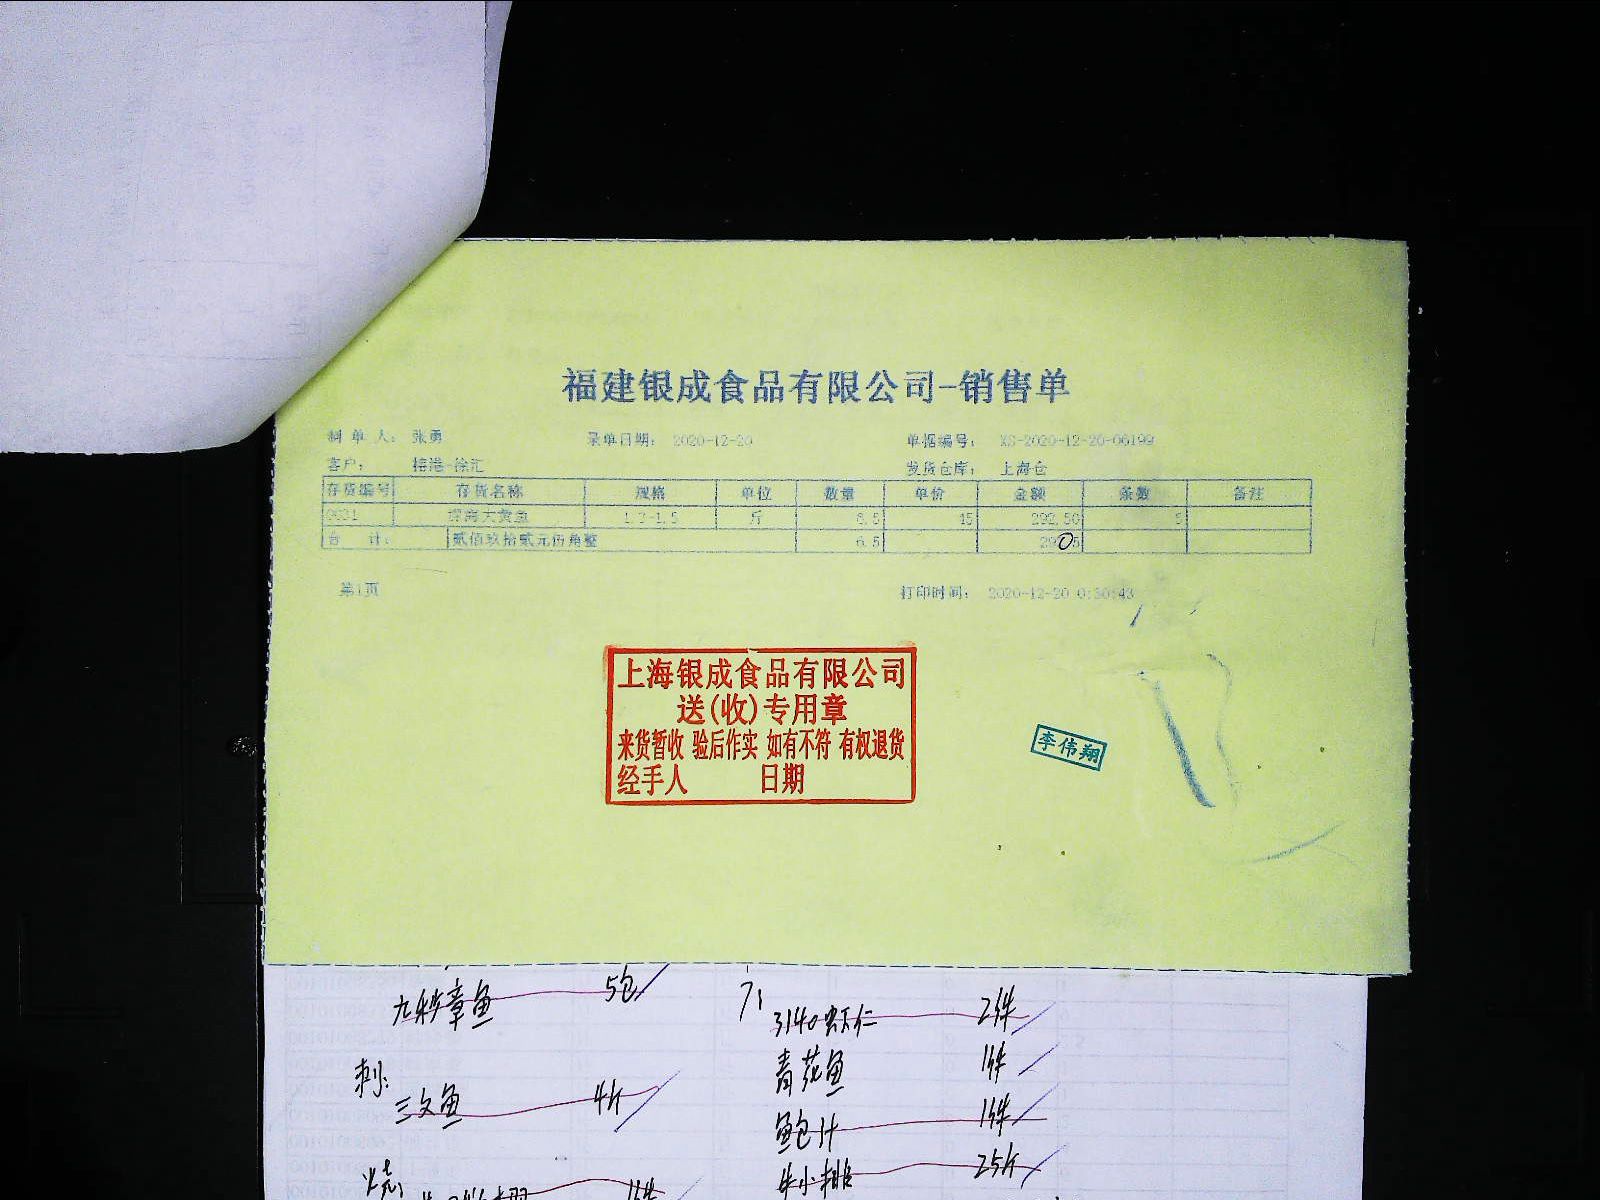 福建银成食品有限公司-销售单
制 单 人： 张勇 录单日期： 2020-12-20 单据编号： XS-2020-12-20-06199
客户： 徐汇 发货仓库： 上海仓
存货编号 存货名称 规格 单位 数量 单价 金额 条数 备注
深海大黄鱼 1.3-1.5 斤 6.5 45 292.50 5
合 计： 贰佰玖拾贰元伍角整 6.5
第1页 打印时间： 2020-12-20 0:30:43
上海银成食品有限公司
送(收)专用章
来货暂收 验后作实 如有不符 有权退货
经手人 日期
李伟翔
九秒章鱼 5包
刺:
三文鱼 4斤
烧:
3140虾仁 2件
青花鱼 1件
鲍汁 1件
牛小排 25斤